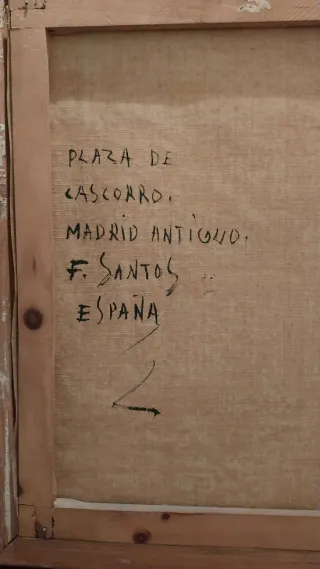 PLAZA DE
CASCORRO.
MADRID ANTIGUO.
F. SANTOS
ESPAÑA